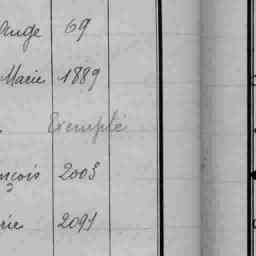 Ange 69
Marie 1889
Exempté
nçois 2003
rie 2091